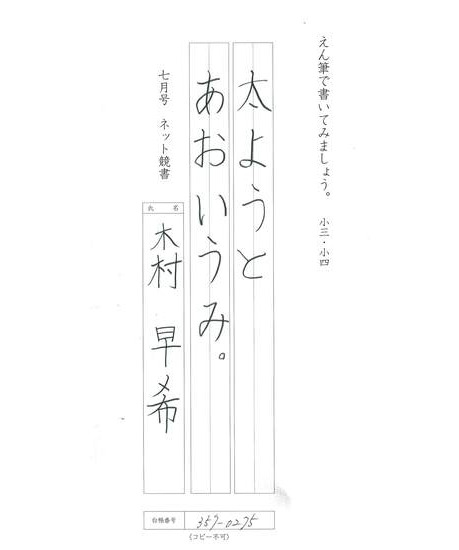 えん筆で書いてみましょう。　小三・小四
太ようと
あおいうみ。
七月号　ネット競書
氏名
木村　早希
台帳番号
357-0275
(コピー不可)